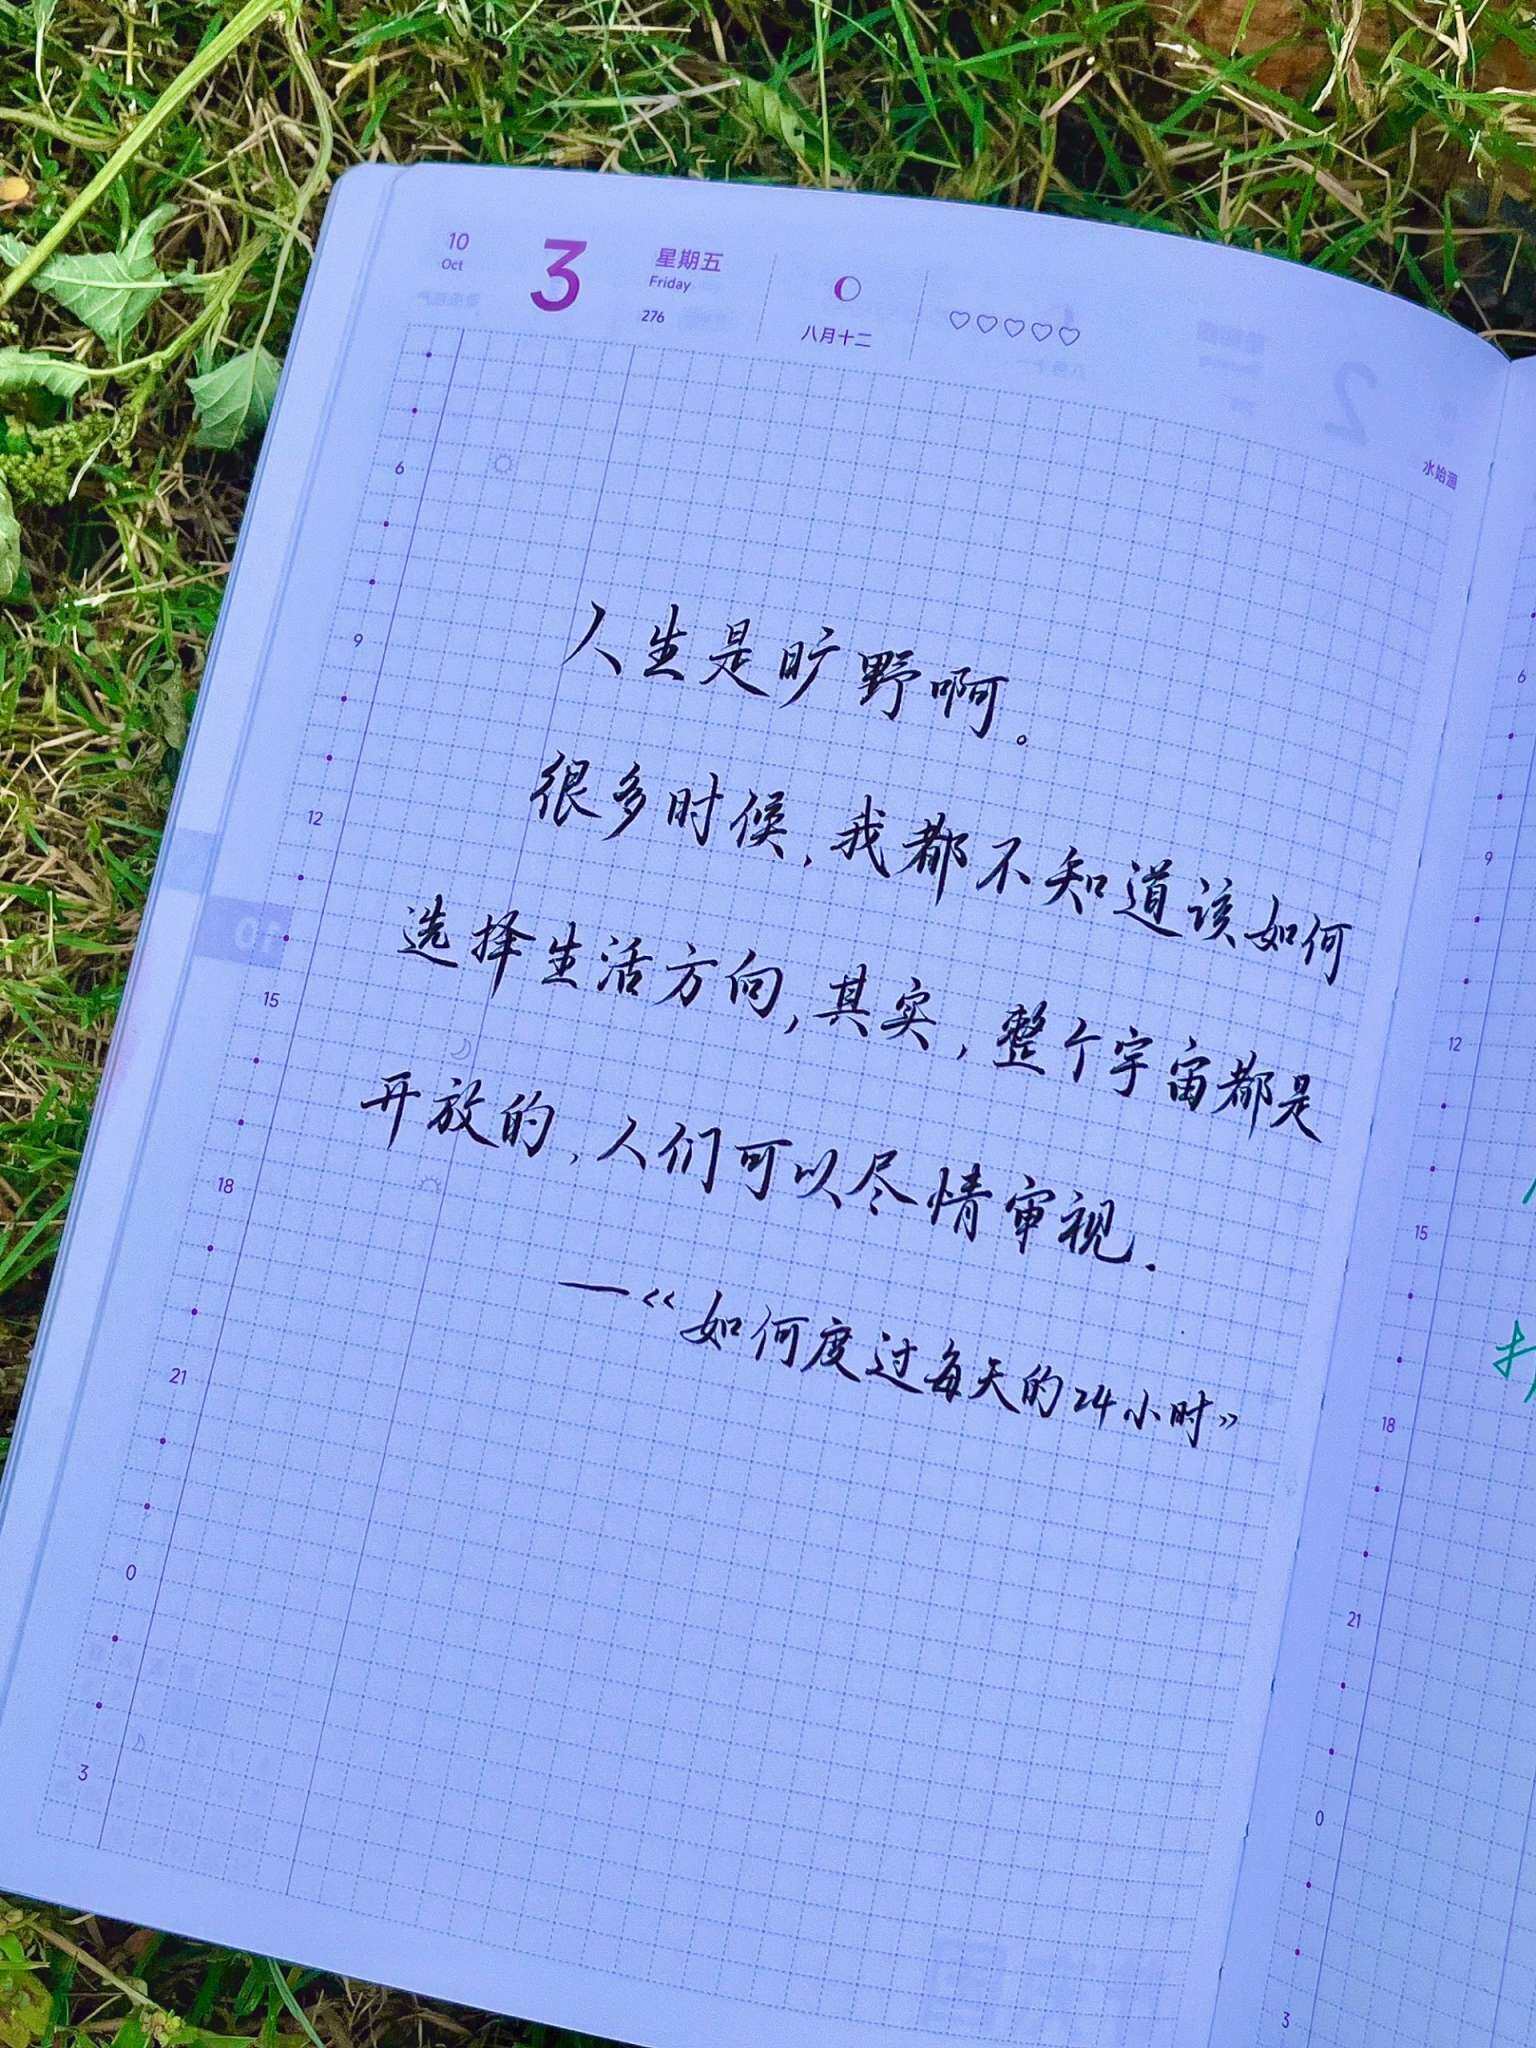 10
Oct
3
星期五
Friday
276
八月十二
水始涸
6
9
12
15
18
21
0
3
人生是旷野啊。
很多时候,我都不知道该如何
选择生活方向,其实,整个宇宙都是
开放的,人们可以尽情审视.
—《如何度过每天的24小时》
6
9
12
15
18
21
0
3